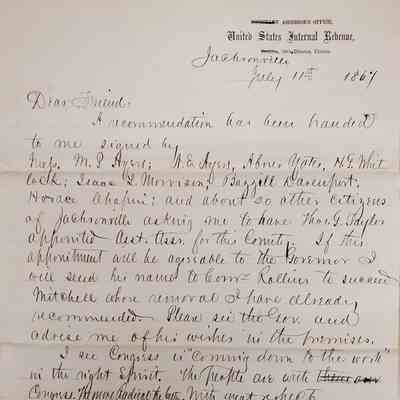 ASSESSOR'S OFFICE,
United States Internal Revenue,
District, Illinois.
Jacksonville
July 11th 1867
Dear Friend:
A recommendation has been handed
to me signed by
M. P. Ayers; Ayers, Abner Yates, H. G. Whit
lock; Isaac L. Morrison; Bazzill Davenport;
Horace Chapin; and about 50 other citizens
of Jacksonville asking me to have Thos. G. Taylor
appointed Asst. Assr. for this County. If this
appointment will be agreeable to the Governor I
will send his name to Comr Rollins to succeed
Mitchell whose removal I have already
recommended. Please see the Gov. and
advise me of his wishes in the premises.
I see Congress is "coming down to the work"
in the right spirit. The people are with
Congress. The more radical the better.